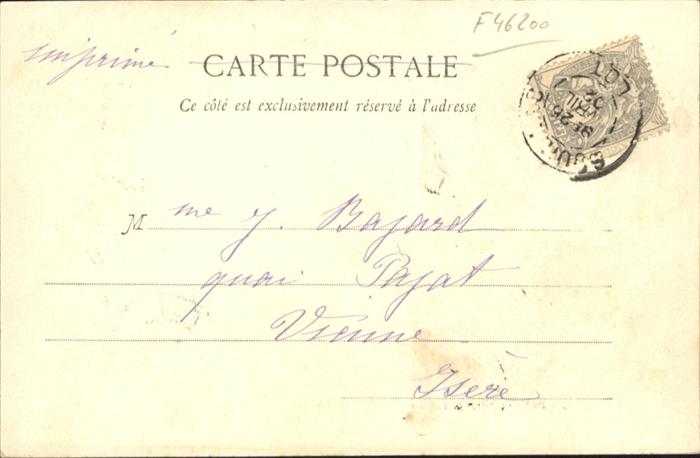 F 46200
imprimé
CARTE POSTALE
Ce côté est exclusivement réservé à l'adresse
M me J. Bajard
quai Pajat
Vienne
Isère
LOT